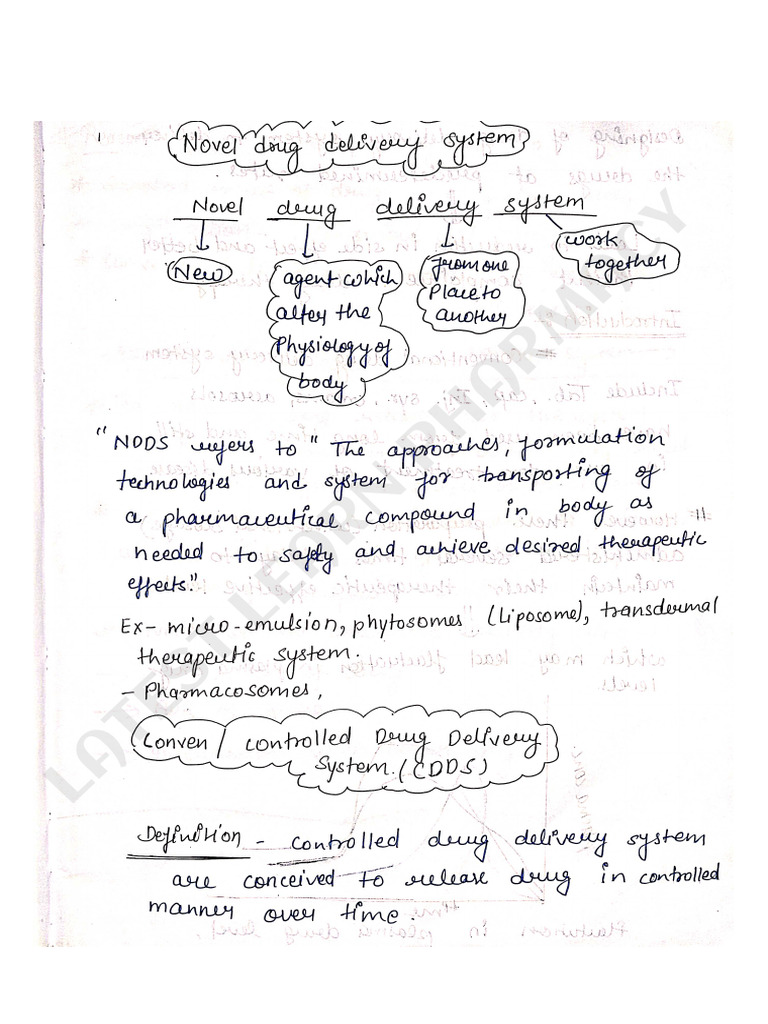 Novel drug delivery system
Novel drug delivery system
New
agent which
alter the
physiology of
body
from one
place to
another
work
together
"NDDS refers to "The approaches, formulation
technologies and system for transporting of
a pharmaceutical compound in body as
needed to safely and achieve desired therapeutic
effects."
Ex- micro-emulsion, phytosomes (Liposome), transdermal
therapeutic system.
- Pharmacosomes,
Conven / controlled Drug Delivery
System. (CDDS)
Definition - controlled drug delivery system
are conceived to release drug in controlled
manner over time.
LATEST LEARN PHARMACY